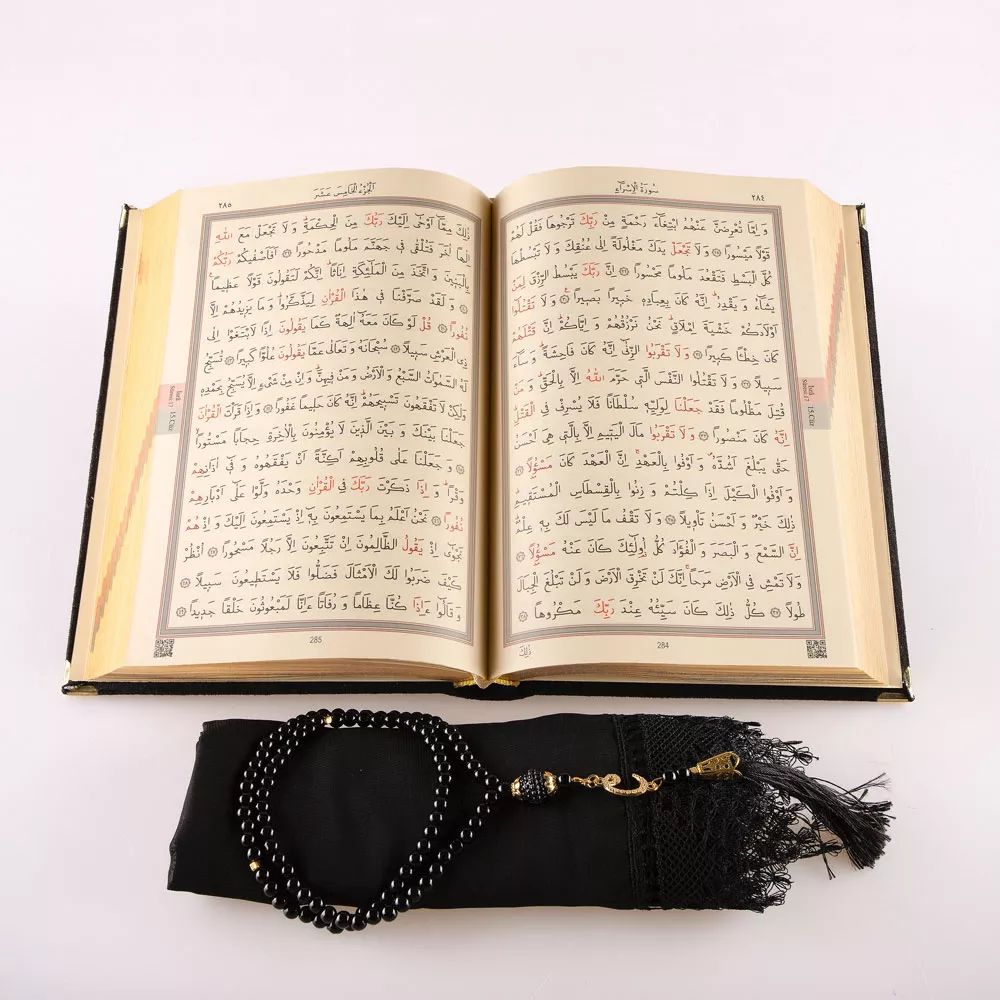 سُورَةُ الْاِسْرَاءِ ٢٨٤
وَ اِمَّا تُعْرِضَنَّ عَنْهُمُ ابْتِغَٓاءَ رَحْمَةٍ مِنْ رَبِّكَ تَرْجُوهَا فَقُلْ لَهُمْ
قَوْلًا مَيْسُورًا ﴿٢٨﴾ وَ لَا تَجْعَلْ يَدَكَ مَغْلُولَةً اِلٰى عُنُقِكَ وَ لَا تَبْسُطْهَا
كُلَّ الْبَسْطِ فَتَقْعُدَ مَلُومًا مَحْسُورًا ﴿٢٩﴾ اِنَّ رَبَّكَ يَبْسُطُ الرِّزْقَ لِمَنْ
يَشَٓاءُ وَ يَقْدِرُ اِنَّهُ كَانَ بِعِبَادِه۪ خَب۪يرًا بَص۪يرًا ﴿٣٠﴾ وَ لَا تَقْتُلُٓوا
اَوْلَادَكُمْ خَشْيَةَ اِمْلَاقٍ نَحْنُ نَرْزُقُهُمْ وَ اِيَّاكُمْ اِنَّ قَتْلَهُمْ
كَانَ خِطْئًا كَب۪يرًا ﴿٣١﴾ وَ لَا تَقْرَبُوا الزِّنٰٓى اِنَّهُ كَانَ فَاحِشَةً وَ سَٓاءَ
سَب۪يلًا ﴿٣٢﴾ وَ لَا تَقْتُلُوا النَّفْسَ الَّت۪ي حَرَّمَ اللّٰهُ اِلَّا بِالْحَقِّ وَ مَنْ
قُتِلَ مَظْلُومًا فَقَدْ جَعَلْنَا لِوَلِيِّه۪ سُلْطَانًا فَلَا يُسْرِفْ فِي الْقَتْلِ
اِنَّهُ كَانَ مَنْصُورًا ﴿٣٣﴾ وَ لَا تَقْرَبُوا مَالَ الْيَت۪يمِ اِلَّا بِالَّت۪ي هِيَ اَحْسَنُ
حَتّٰى يَبْلُغَ اَشُدَّهُ وَ اَوْفُوا بِالْعَهْدِ اِنَّ الْعَهْدَ كَانَ مَسْؤُ۫لًا ﴿٣٤﴾
وَ اَوْفُوا الْكَيْلَ اِذَا كِلْتُمْ وَ زِنُوا بِالْقِسْطَاسِ الْمُسْتَق۪يمِ
ذٰلِكَ خَيْرٌ وَ اَحْسَنُ تَأْو۪يلًا ﴿٣٥﴾ وَ لَا تَقْفُ مَا لَيْسَ لَكَ بِه۪ عِلْمٌ
اِنَّ السَّمْعَ وَ الْبَصَرَ وَ الْفُؤَادَ كُلُّ اُو۬لٰٓئِكَ كَانَ عَنْهُ مَسْؤُ۫لًا ﴿٣٦﴾
وَ لَا تَمْشِ فِي الْاَرْضِ مَرَحًا اِنَّكَ لَنْ تَخْرِقَ الْاَرْضَ وَ لَنْ تَبْلُغَ الْجِبَالَ
طُولًا ﴿٣٧﴾ كُلُّ ذٰلِكَ كَانَ سَيِّئُهُ عِنْدَ رَبِّكَ مَكْرُوهًا ﴿٣٨﴾
284
ذٰلِكَ
İsrâ
Sûresi 17
15. Cüz
الْجُزْءُ الْخَامِسَ عَشَرَ ٢٨٥
ذٰلِكَ مِمَّٓا اَوْحٰٓى اِلَيْكَ رَبُّكَ مِنَ الْحِكْمَةِ وَ لَا تَجْعَلْ مَعَ اللّٰهِ
اِلٰهًا اٰخَرَ فَتُلْقٰى ف۪ي جَهَنَّمَ مَلُومًا مَدْحُورًا ﴿٣٩﴾ اَفَاَصْفٰيكُمْ رَبُّكُمْ
بِالْبَن۪ينَ وَ اتَّخَذَ مِنَ الْمَلٰٓئِكَةِ اِنَاثًا اِنَّكُمْ لَتَقُولُونَ قَوْلًا عَظ۪يمًا
﴿٤٠﴾ وَ لَقَدْ صَرَّفْنَا ف۪ي هٰذَا الْقُرْاٰنِ لِيَذَّكَّرُوا وَ مَا يَز۪يدُهُمْ اِلَّا
نُفُورًا ﴿٤١﴾ قُلْ لَوْ كَانَ مَعَهُٓ اٰلِهَةٌ كَمَا يَقُولُونَ اِذًا لَابْتَغَوْا اِلٰى
ذِي الْعَرْشِ سَب۪يلًا ﴿٤٢﴾ سُبْحَانَهُ وَ تَعَالٰى عَمَّا يَقُولُونَ عُلُوًّا كَب۪يرًا ﴿٤٣﴾ تُسَبِّحُ
لَهُ السَّمٰوَاتُ السَّبْعُ وَ الْاَرْضُ وَ مَنْ ف۪يهِنَّ وَ اِنْ مِنْ شَيْءٍ اِلَّا يُسَبِّحُ بِحَمْدِه۪
وَلٰكِنْ لَا تَفْقَهُونَ تَسْب۪يحَهُمْ اِنَّهُ كَانَ حَل۪يمًا غَفُورًا ﴿٤٤﴾ وَ اِذَا قَرَأْتَ الْقُرْاٰنَ
جَعَلْنَا بَيْنَكَ وَ بَيْنَ الَّذ۪ينَ لَا يُؤْمِنُونَ بِالْاٰخِرَةِ حِجَابًا مَسْتُورًا
﴿٤٥﴾ وَ جَعَلْنَا عَلٰى قُلُوبِهِمْ اَكِنَّةً اَنْ يَفْقَهُوهُ وَ ف۪ٓي اٰذَانِهِمْ
وَقْرًا وَ اِذَا ذَكَرْتَ رَبَّكَ فِي الْقُرْاٰنِ وَحْدَهُ وَلَّوْا عَلٰٓى اَدْبَارِهِمْ
نُفُورًا ﴿٤٦﴾ نَحْنُ اَعْلَمُ بِمَا يَسْتَمِعُونَ بِه۪ٓ اِذْ يَسْتَمِعُونَ اِلَيْكَ وَ اِذْ هُمْ
نَجْوٰٓى اِذْ يَقُولُ الظَّالِمُونَ اِنْ تَتَّبِعُونَ اِلَّا رَجُلًا مَسْحُورًا ﴿٤٧﴾ اُنْظُرْ
كَيْفَ ضَرَبُوا لَكَ الْاَمْثَالَ فَضَلُّوا فَلَا يَسْتَط۪يعُونَ سَب۪يلًا ﴿٤٨﴾
وَ قَالُٓوا ءَاِذَا كُنَّا عِظَامًا وَ رُفَاتًا ءَاِنَّا لَمَبْعُوثُونَ خَلْقًا جَد۪يدًا ﴿٤٩﴾
285
İsrâ
Sûresi 17
15. Cüz